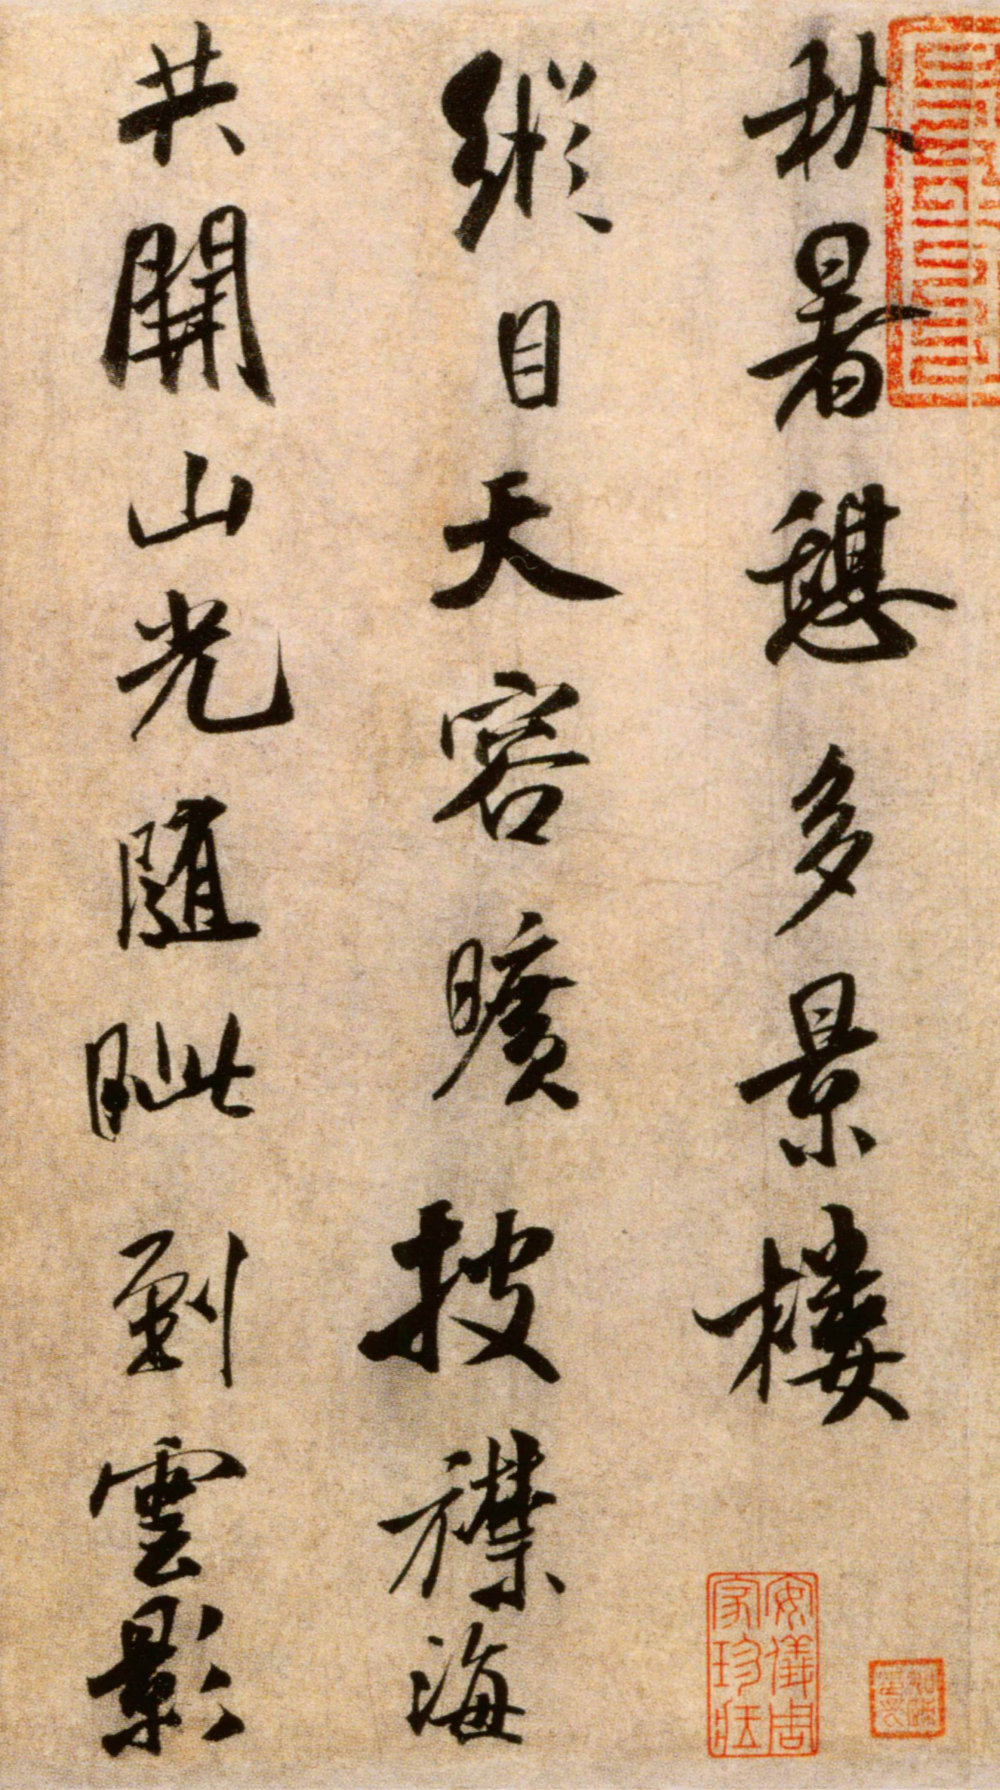 秋暑憩多景樓
縱目天容曠披襟海
共開山光隨眦到雲影
安儀周
家珍藏